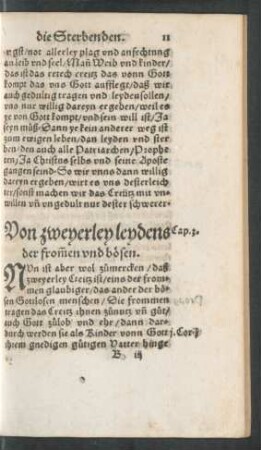 die Sterbenden. 11
angst/not allerley plag vnd anfechtung
an leib vnd seel/Man̄ Weib vnd kinder/
das ist das recht creütz das vonn Gott
kompt das vns Gott aufflegt/daß wir
auch gedultig tragen vnd leyden sollen/
vns nur willig dareyn ergeben/weil es
ye von Gott kompt/vnd sein will ist/Ja
seyn müß/Dann ye kein anderer weg ist
zum ewigen leben/dan leyden vnd ster
ben/den auch alle Patriarchen/Prophe
ten/Ja Christus selbs vnd seine Apostel
gangen seind/So wir vnns dann willig
dareyn ergeben/wirt es vns desterleich
ter/sonst machen wir das Creütz mit vn-
willen vn̄ vngedult nur dester schwerer.
Von zweyerley leydens Cap.3.
der from̄en vnd bösen.
NVn ist aber wol zümercken/daß
zweyerley Creitz ist/eins der from-
men glaubiger/das ander der bö-
sen Gottlosen menschen/Die frommen
tragen das Creütz ihnen zünutz vn̄ güt/
auch Gott zülob vnd ehr/vnd dann dar-
durch werden sie als Kinder vonn Gott j.Cor.
ihrem gnedigen gütigen Vatter hinge
B iij